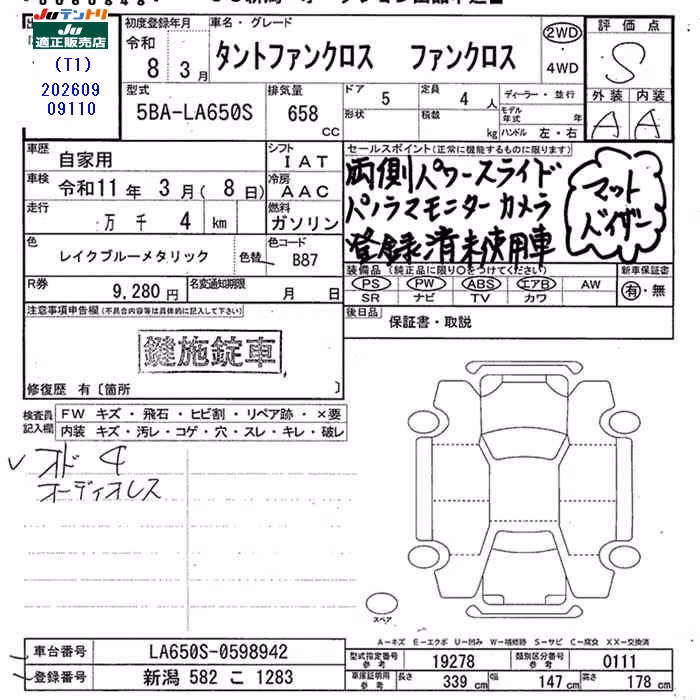 JUテントリ
JU適正販売店
(T1)
202609
09110
初度登録年月
車名・グレード
令和
8 3月
タントファンクロス ファンクロス
2WD
・
4WD
評価点
S
外装 内装
A A
型式
5BA-LA650S
排気量
658
CC
ドア
5
定員
4 人
ディーラー・並行
形状
積載
kg
モデル年式 年
ハンドル 左・右
車歴
自家用
シフト
IAT
車検
令和11年 3月( 8日)
冷房
AAC
走行
万 千 4 km
燃料
ガソリン
セールスポイント(正常に機能するものに限ります)
両側パワースライド
パノラマモニターカメラ
登録済未使用車
マット
バイザー
色
レイクブルーメタリック
色替
色コード
B87
R券
9,280円
名変通知期限
月 日
装備品(純正品に限り○をつけてください)
PS PW ABS エアB AW
SR ナビ TV カワ
新車保証書
有・無
後日品
保証書・取説
注意事項申告欄(不具合内容等は具体的に記入して下さい)
鍵施錠車
修復歴 有〔箇所 〕
検査員記入欄
FW キズ・飛石・ヒビ割・リペア跡・×要
内装 キズ・汚レ・コゲ・穴・スレ・キレ・破レ
オド 4
オーディオレス
スペア
A－キズ E－エクボ U－凹み W－補修跡 S－サビ C－腐食 XX－交換済
車台番号
LA650S-0598942
登録番号
新潟 582 こ 1283
型式指定番号参考
19278
類別区分番号参考
0111
車庫証明用参考
長さ 339 cm
幅 147 cm
高さ 178 cm